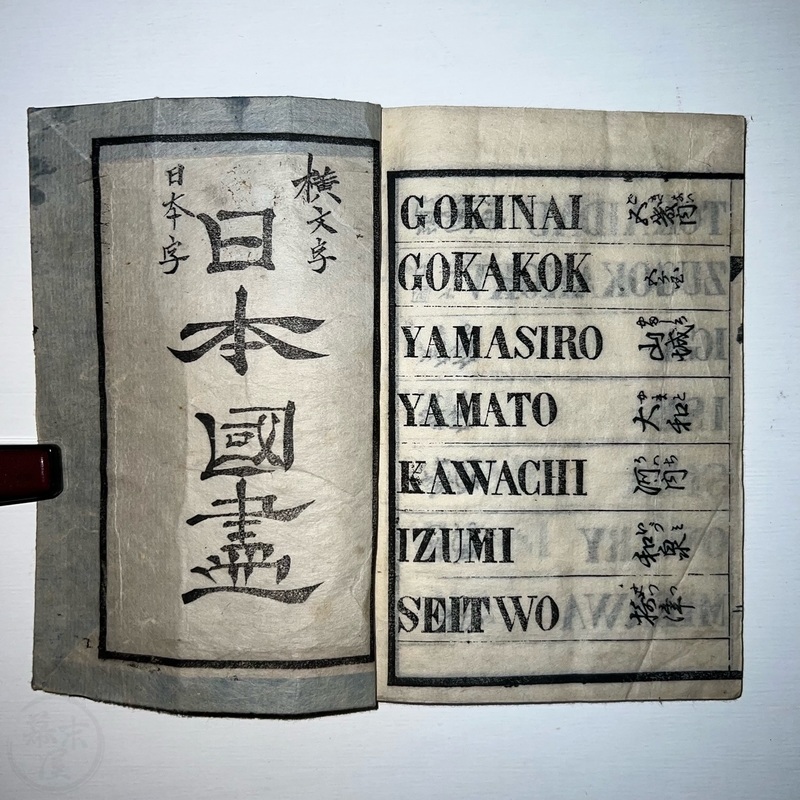 横文字
日本國盡
日本字
GOKINAI 五畿内
GOKAKOK 五ヶ国
YAMASIRO 山城
YAMATO 大和
KAWACHI 河内
IZUMI 和泉
SEITWO 摂津